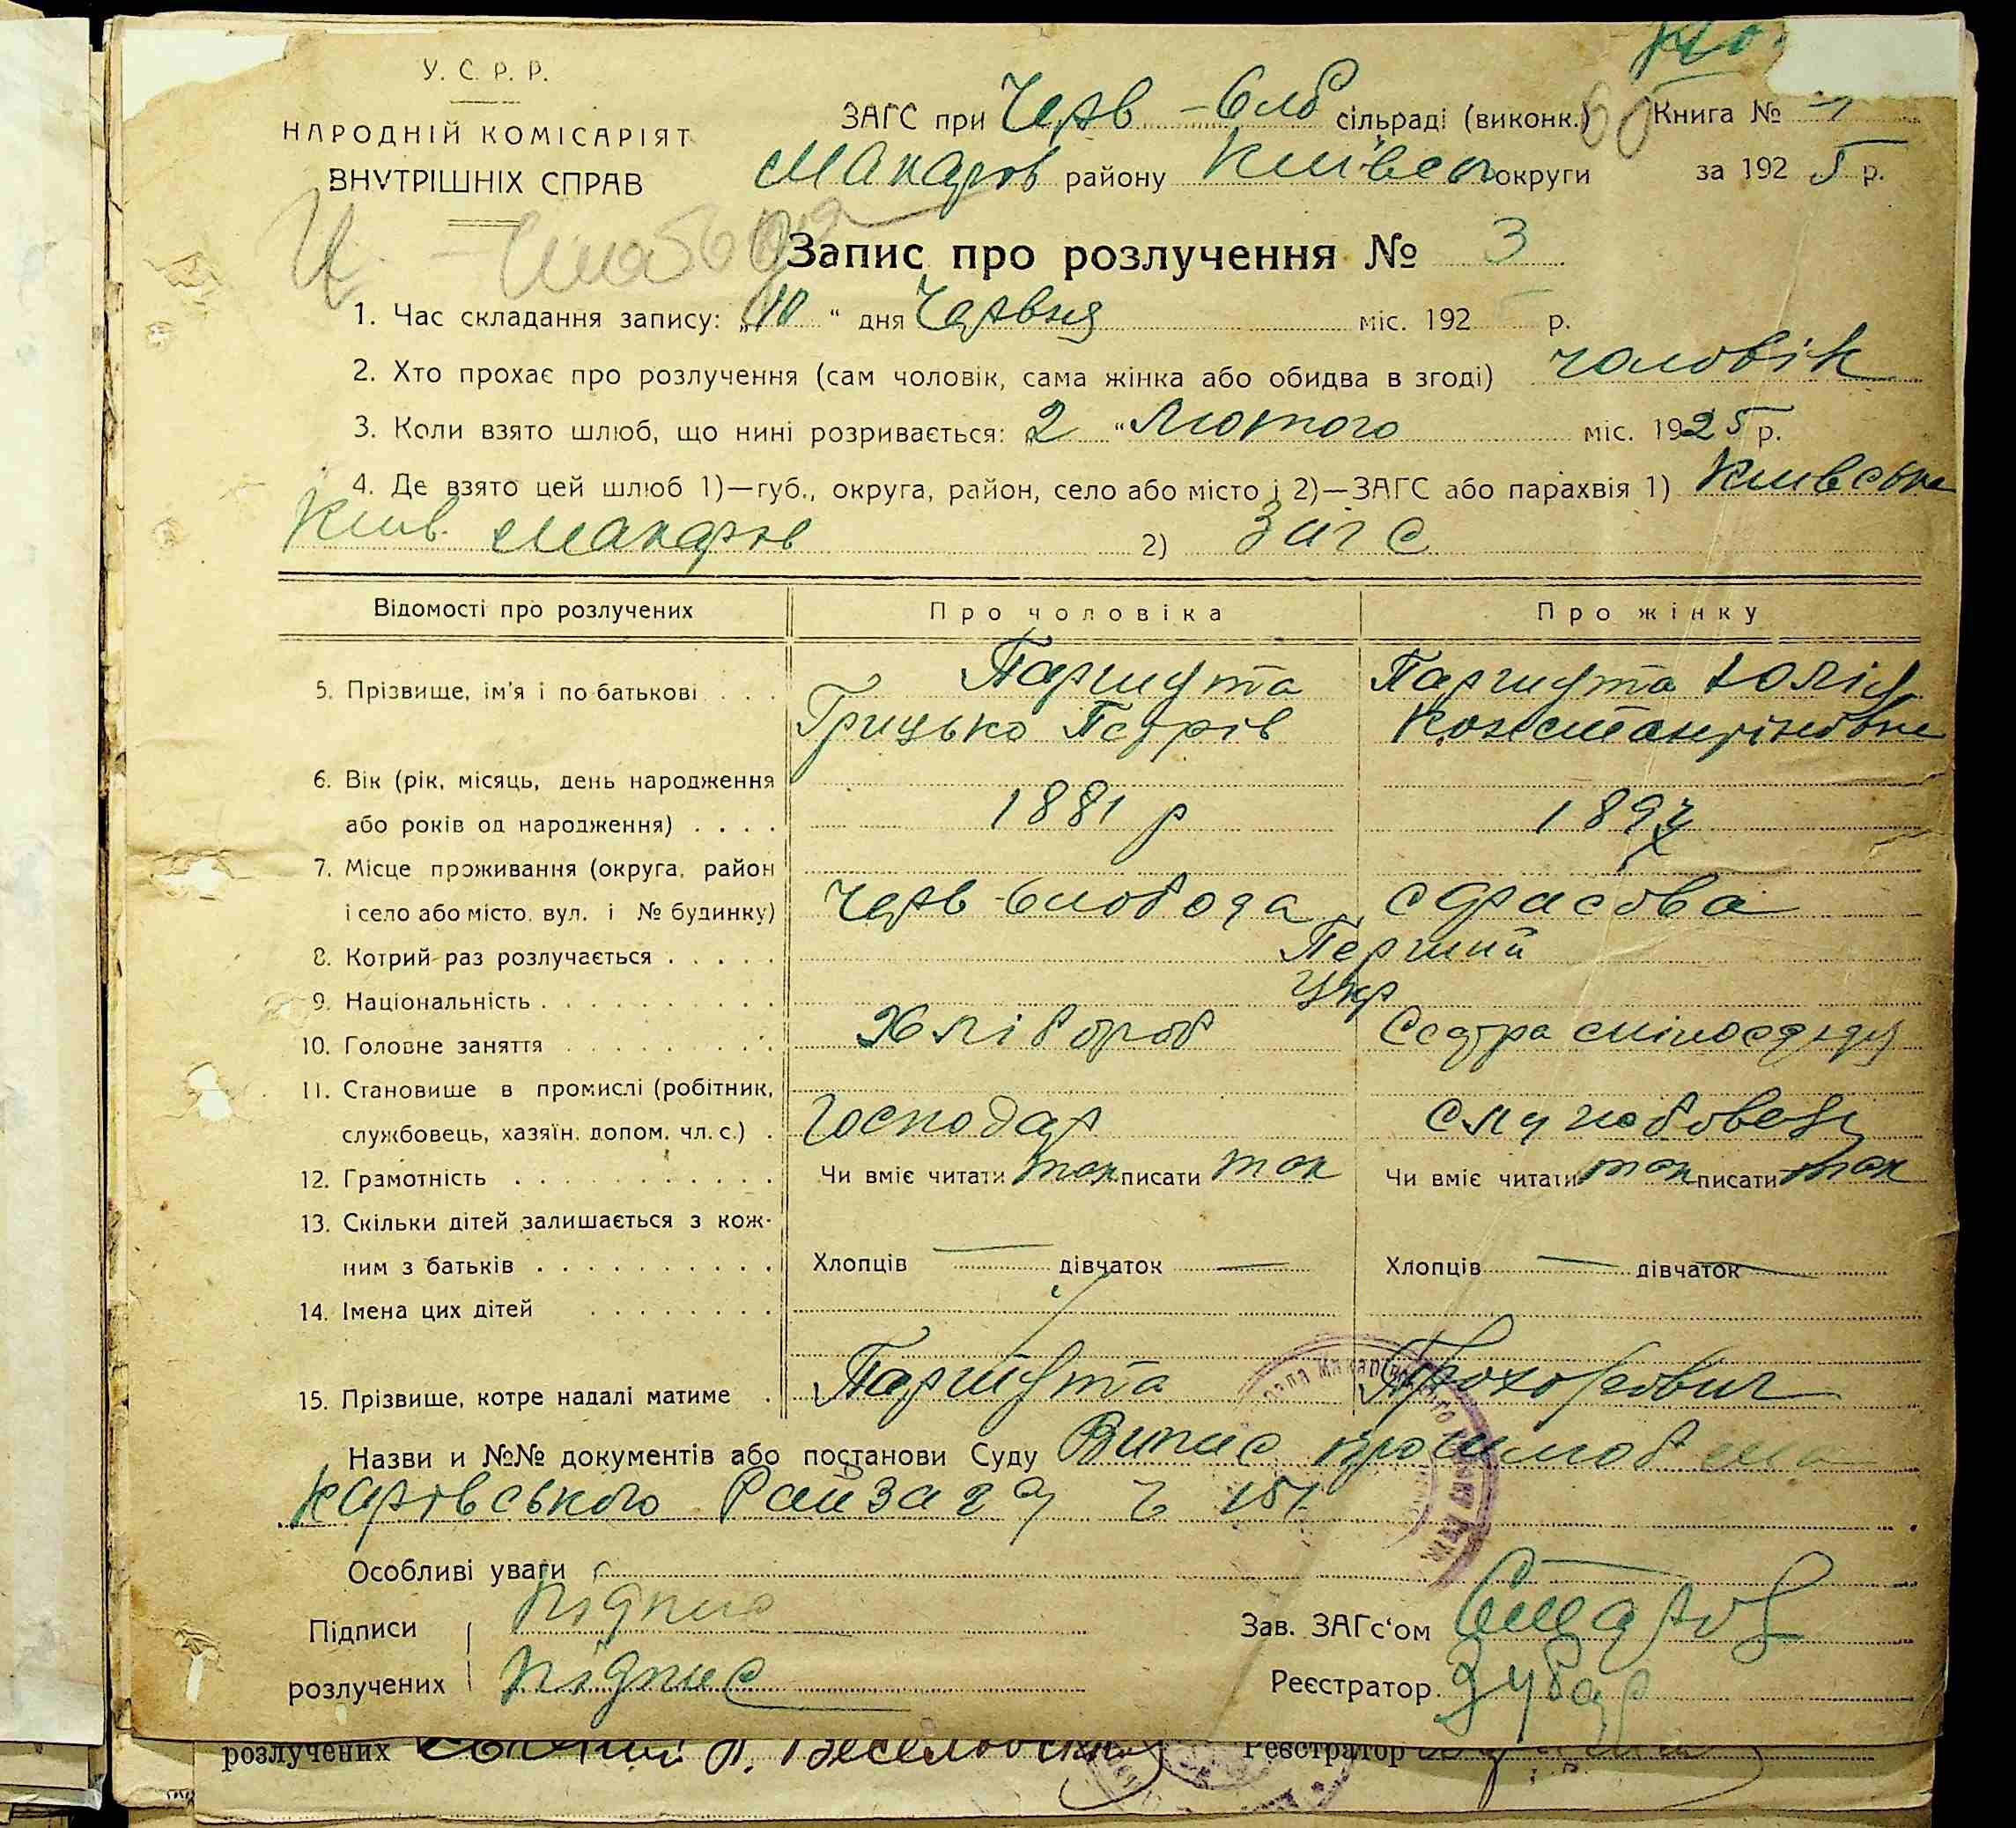 У. С. Р. Р.
НАРОДНІЙ КОМІСАРІЯТ
ВНУТРІШНІХ СПРАВ
ЗАГС при Черв-Слб сільраді (виконк.) 60 Книга №
Макарів району Київськ округи за 1925 р.
Запис про розлучення № 3
1. Час складання запису: „10“ дня Червня міс. 192 р.
2. Хто прохає про розлучення (сам чоловік, сама жінка або обидва в згоді) чоловік
3. Коли взято шлюб, що нині розривається: „2“ Лютого міс. 1925 р.
4. Де взято цей шлюб 1)—губ., округа, район, село або місто і 2)—ЗАГС або парахвія 1) Київська
Київ. Макарів 2) Загс
Відомості про розлучених Про чоловіка Про жінку
5. Прізвище, ім'я і по-батькові . . . Паршута Паршута Юлія
Грицько Петрів Константіновна
6. Вік (рік, місяць, день народження
або років од народження) . . . . 1881 р 1897
7. Місце проживання (округа, район
і село або місто, вул. і № будинку) Черв-Слобода
8. Котрий раз розлучається . . . . . Перший
9. Національність . . . . . . . . . . Укр
10. Головне заняття . . . . . . . . . Хлібороб Сестра
11. Становище в промислі (робітник,
службовець, хазяїн, допом. чл. с.) . Господар службовець
12. Грамотність . . . . . . . . . . . Чи вміє читати так писати так Чи вміє читати так писати так
13. Скільки дітей залишається з кож-
ним з батьків . . . . . . . . . . Хлопців — дівчаток — Хлопців — дівчаток —
14. Імена цих дітей . . . . . . . .
15. Прізвище, котре надалі матиме . Паршута Прохорович
Назви и №№ документів або постанови Суду Випис про шлюб Ма
карівського Райзагсу ч 151
Особливі уваги
Підписи підпис Зав. ЗАГс'ом
розлучених підпис Реєстратор
розлучених Реєстратор